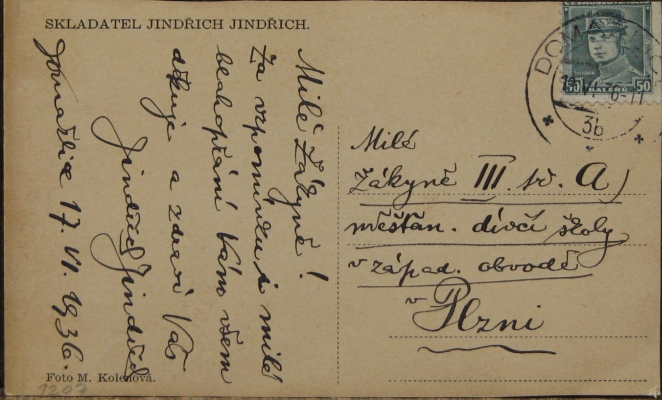 SKLADATEL JINDŘICH JINDŘICH.
Milé žákyně!
Za vzpomínku i milé
blahopřání Vám všem
děkuje a zdraví Vás
Jindřich Jindřich
Domažlice 17. VI. 1936.
Foto M. Kolenová.
1207
ČESKOSLOVENSKO
50 HALÉŘŮ 50
DOMA
3b
Milé
žákyně III. tř. A)
měšťan. dívčí školy
v západ. obvodě
v Plzni